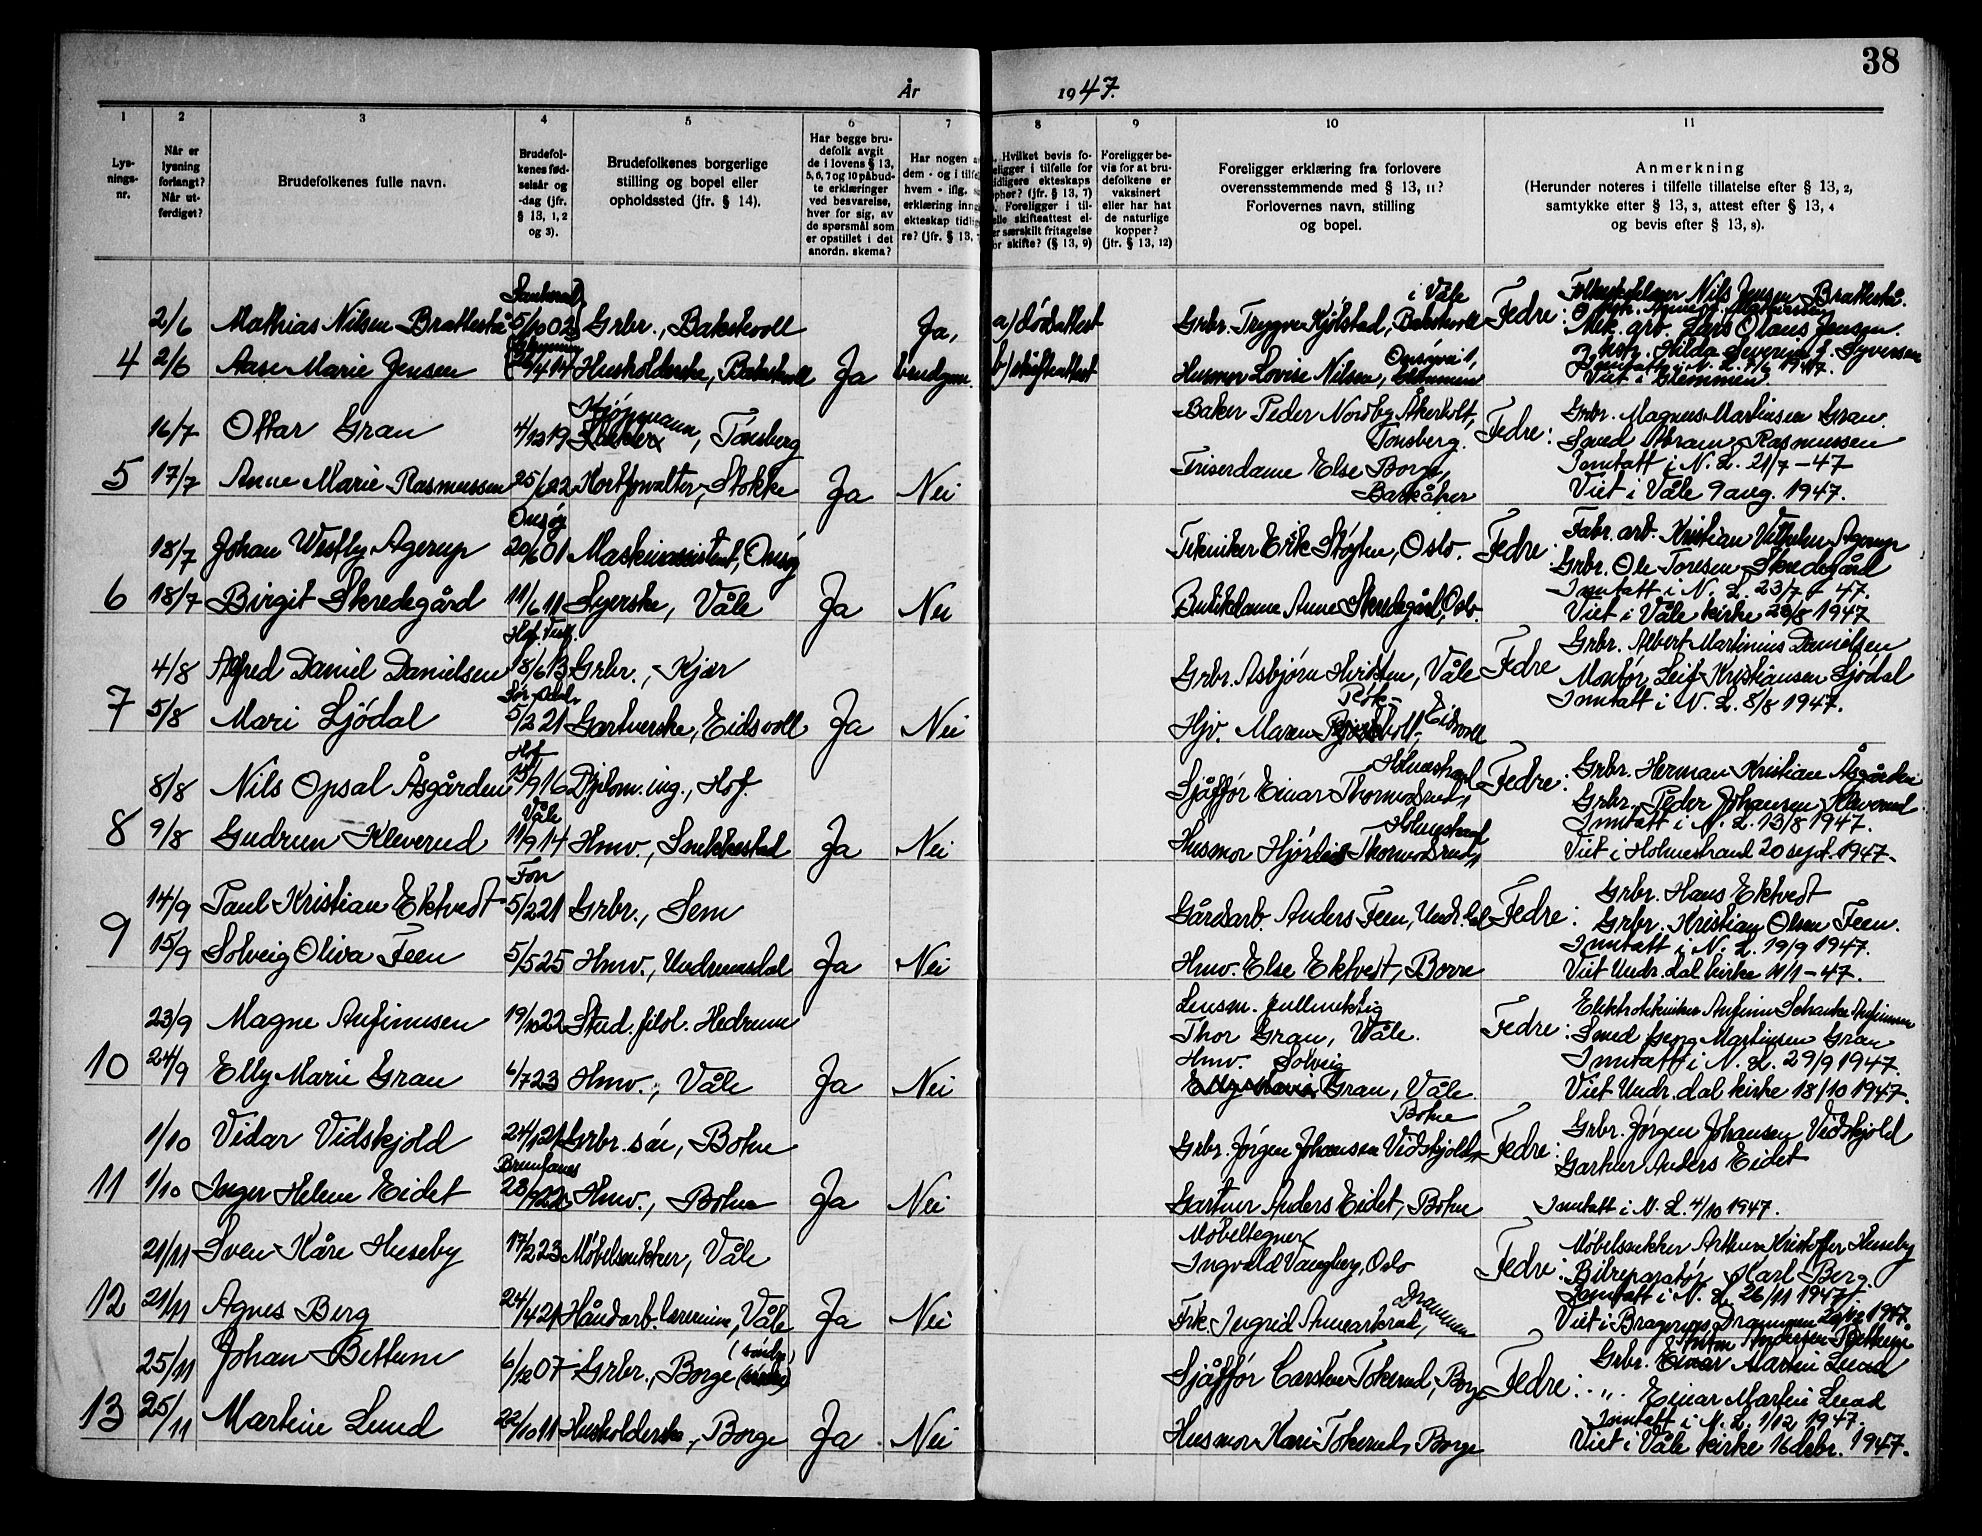 38
År 1947.
1 2 3 4 5 6 7 8 9 10 11
Lys-
nings-
nr.
Når er
lysning
forlangt?
Når ut-
ferdiget?
Brudefolkenes fulle navn.
Brudefol-
kenes fød-
selsår og
-dag (jfr.
§ 13, 1, 2
og 3).
Brudefolkenes borgerlige
stilling og bopel eller
opholdssted (jfr. § 14).
Har begge bru-
defolk avgit
de i lovens § 13,
5, 6, 7 og 10 påbud-
te erklæringer
ved besvarelse,
hver for sig, av
de spørsmål som
er opstillet i det
anordn. skema?
Har nogen a
dem - og i tilfe
hvem - iflg.
erklæring inng
ekteskap tidlig
re? (jfr. § 13,
Hvilket bevis fo-
eligger i tilfelle for
idligere ekteskaps
ophør? (jfr. § 13, 7)
Foreligger i til-
elle skifteattest el-
er særskilt fritagelse
or skifte? (§ 13, 9)
Foreligger be-
vis for at bru-
defolkene er
vaksinert
eller har hat
de naturlige
kopper?
(jfr. § 13, 12)
Foreligger erklæring fra forlovere
overensstemmende med § 13, 11?
Forlovernes navn, stilling
og bopel.
Anmerkning
(Herunder noteres i tilfelle tillatelse efter § 13, 2,
samtykke efter § 13, 3, attest efter § 13, 4
og bevis efter § 13, 8).
2/6 Mathias Nilsen Brattestå 5/10 02 Grbr., Bakskvoll Ja, a) dødsattest Grbr. Trygve Kjølstad, Bakskvoll i Våle Fedre: Nils Jensen Brattestå.
Mek. arb. Lars Olaus Jensen.
4 2/6 Aase Marie Jensen 4 14 Husholderske, Bakskvoll Ja brudgom. b) skifteattest Husmor Lovise Nilsen, Onsøyvei 1, Glemmen
Hilda Severine f. Syversen
Inntatt i N. L. 7/6 1947.
Viet i Glemmen.
16/7 Ottar Gran 4/12 19 Kjøpmann, Tønsberg Baker Peder Nordby Åkerholt, Tønsberg. Fedre: Grbr. Magnus Martinsen Gran.
Smed Abram Rasmussen
5 17/7 Anne Marie Rasmussen 25/6 22 Kortforvalter, Stokke Ja Nei Friserdame Else Borge, Barkåker
Inntatt i N. L. 21/7 - 47
Viet i Våle 9 aug. 1947.
Onsøy
18/7 Johan Westby Agerup 20/6 01 Maskinassistent, Onsøy Tekniker Erik Støyten, Oslo. Fedre: Fabr. arb. Kristian Vilhelm Agerup
Grbr. Ole Toresen Skredegård
6 18/7 Birgit Skredegård 11/6 11 Syerske, Våle Ja Nei Butikdame Anne Skredegård, Oslo.
Inntatt i N. L. 23/7 - 47.
Viet i Våle kirke 20/8 1947
Hof, Vestf.
4/8 Alfred Daniel Danielsen 18/6 13 Grbr., Kjær Grbr. Asbjørn Hvitsten, Våle Fedre Grbr. Albert Martinius Danielsen
Montør Leif Kristiansen Sjödal
7 5/8 Mari Sjödal 5/2 21 Gartnerske, Eidsvoll Ja Nei Hjv. Maren Eidsvoll
Inntatt i N. L. 8/8 1947.
Hof
8/8 Nils Opsal Åsgården 15/9 16 Diplom. ing., Hof. Sjåffør Einar Thormodsrud, Holmestrand Fedre: Grbr. Herman Kristian Åsgården
Grbr. Peder Johansen Kleverud
Våle
8 9/8 Gudrun Kleverud 11/9 14 Hmv., Snekkestad Ja Nei Husmor Hjördis Thormodsrud, Holmestrand
Inntatt i N. L. 13/8 1947.
Viet i Holmestrand 20 sept. 1947.
Fon
14/9 Paul Kristian Ektvedt 5/2 21 Grbr., Sem Gårdsarb. Anders Feen, Undr.dal Fedre: Grbr. Hans Ektvedt
Grbr. Kristian Olsen Feen.
9 15/9 Solveig Oliva Feen 5/5 25 Hmv., Undrumsdal Ja Nei Hmv. Else Ektvedt, Borre
Inntatt i N. L. 19/9 1947.
Viet Undr.dal kirke 1/11 - 47.
23/9 Magne Anfinnsen 19/10 22 Stud. filol. Hedrum Lensm. fullmektig
Thor Gran, Våle. Fedre: Elektrotekniker Anfinn Schanke Anfinnsen
Smed Georg Martinsen Gran
10 24/9 Elly Marie Gran 6/7 23 Hmv., Våle Ja Nei Hmv. Solveig
Elly Marie Gran, Våle
Inntatt i N. L. 29/9 1947.
Viet Undr.dal kirke 18/10 1947.
1/10 Vidar Vidskjold 24/1 21 Grbr. søn, Botne Grbr. Jørgen Johansen Vidskjold, Botne Fedre: Grbr. Jørgen Johansen Vidskjold
Gartner Anders Eidet
11 1/10 Inger Helene Eidet 23/9 22 Hmv., Botne Ja Nei Gartner Anders Eidet, Botne
Inntatt i N. L. 4/10 1947.
21/11 Sven Kåre Huseby 17/2 23 Møbelsnekker, Våle Møbeltegner
Ingvald Vangberg, Oslo Fedre: Møbelsnekker Arthur Kristoffer Huseby
Bilreparatør Karl Berg.
12 21/11 Agnes Berg 24/4 21 Håndarb. lærerinne, Våle Ja Nei Frk. Ingrid Drammen
Inntatt i N. L. 26/11 1947
Viet i Bragernes, Drammen 1947.
25/11 Johan Bettum 6/12 07 Grbr., Borge (søndre) Sjåffør Carsten Tokerud, Borge Fedre: Anton Andersen Bettum
Grbr. Einar Martin Lund
13 25/11 Martine Lund 22/10 11 Husholderske, Borge Ja Nei Husmor Kari Tokerud, Borge
" Einar Martin Lund
Inntatt i N. L. 1/12 1947.
Viet i Våle kirke 16 debr. 1947.